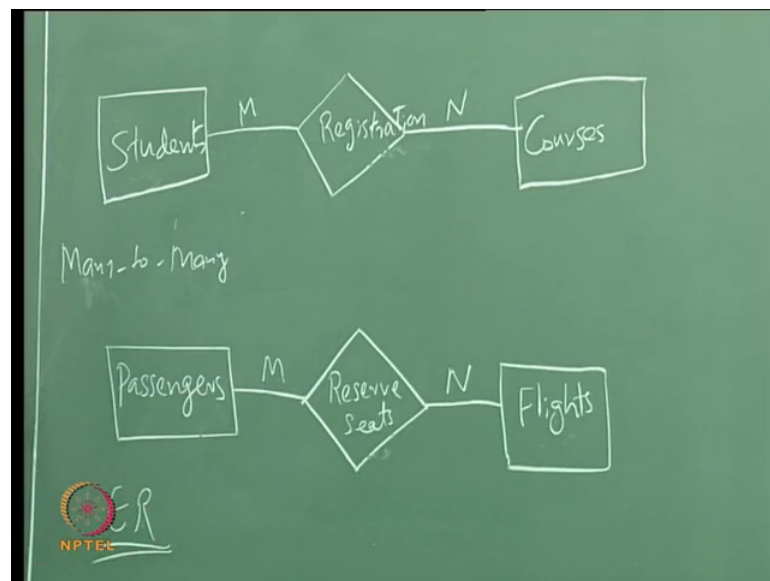 Students
M
Registration
N
Courses
Many-to-Many
Passengers
M
Reserve
Seats
N
Flights
ER
NPTEL